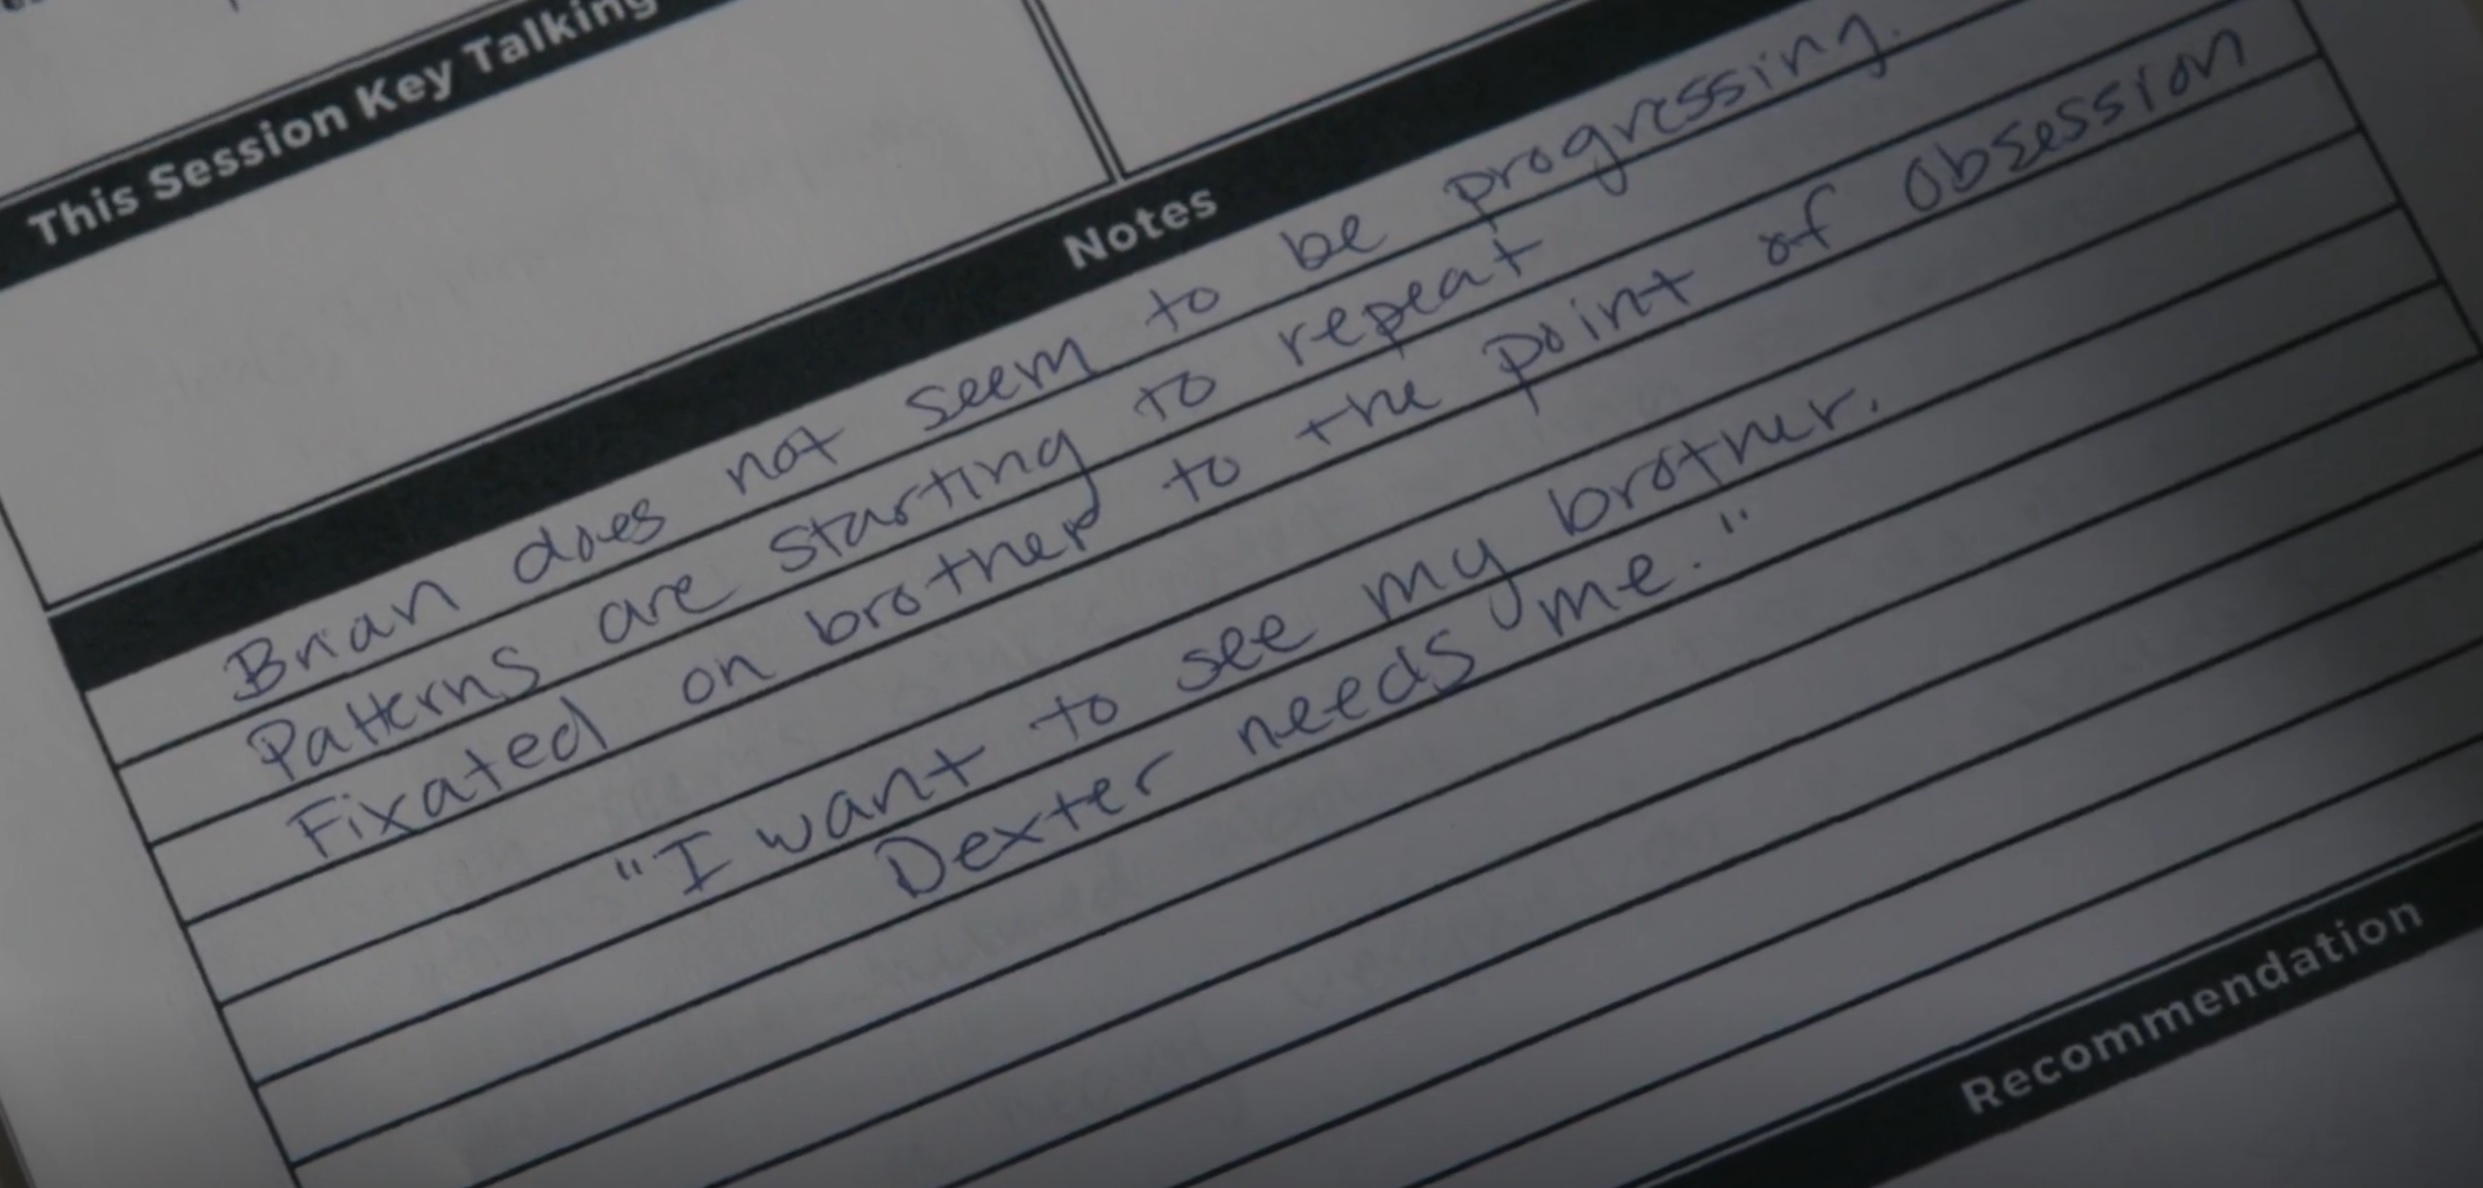 This Session Key Talking
Notes
Brian does not seem to be progressing.
Patterns are starting to repeat
Fixated on brother to the point of obsession
"I want to see my brother.
Dexter needs me."
Recommendation